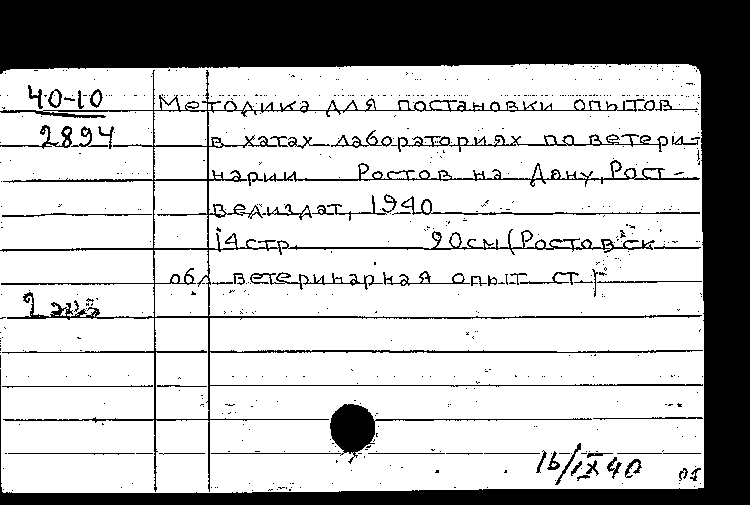 40-10
2894
Методика для постановки опытов
в хатах лабораториях по ветери-
нарии. Ростов на Дану, Раст-
ведиздат, 1940
14 стр. 20см (Ростов'ск
обл ветеринарная опыт. ст.)
2 экз
16/IX 40